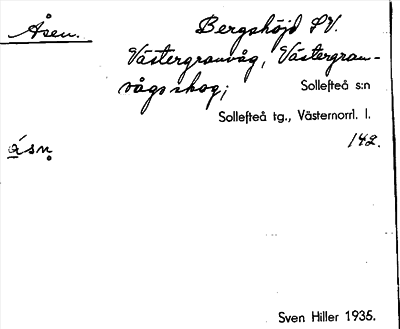 Åsen.
Bergshöjd SV.
Västergranvåg, Västergran-
vågsskog;
Sollefteå s:n
Sollefteå tg., Västernorrl. l.
142.
åsn̥
Sven Hiller 1935.